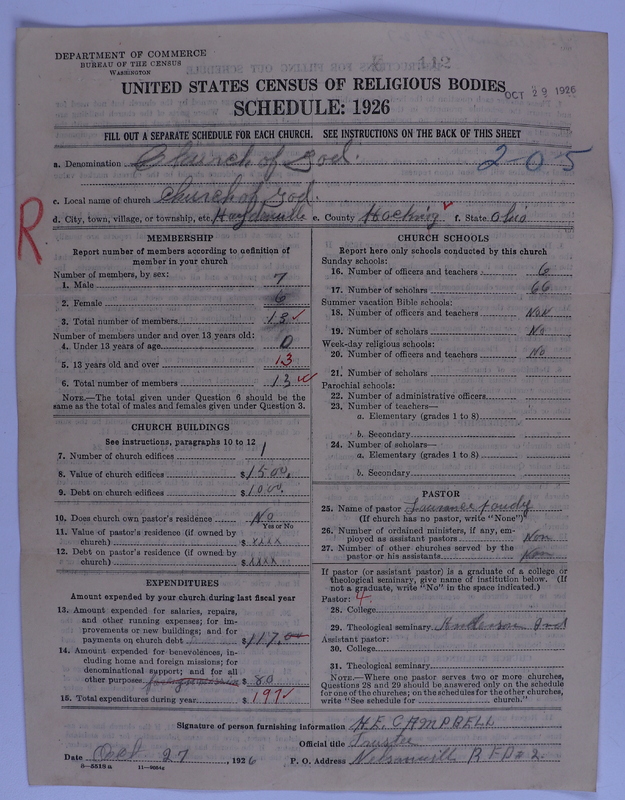 DEPARTMENT OF COMMERCE
BUREAU OF THE CENSUS
WASHINGTON
UNITED STATES CENSUS OF RELIGIOUS BODIES
OCT 29 1926
SCHEDULE: 1926
FILL OUT A SEPARATE SCHEDULE FOR EACH CHURCH. SEE INSTRUCTIONS ON THE BACK OF THIS SHEET
a. Denomination Church of God.
2-0-5
c. Local name of church Church of God.
d. City, town, village, or township, etc. Haydenville e. County Hocking f. State Ohio
R
MEMBERSHIP
Report number of members according to definition of
member in your church
Number of members, by sex:
1. Male 7
2. Female 6
3. Total number of members 13
Number of members under and over 13 years old:
4. Under 13 years of age 0
5. 13 years old and over 13
6. Total number of members 13
NOTE.—The total given under Question 6 should be
same as the total of males and females given under Question 3.
CHURCH BUILDINGS
See instructions, paragraphs 10 to 12
7. Number of church edifices 1
8. Value of church edifices $1500.
9. Debt on church edifices $1000.
10. Does church own pastor's residence No
Yes or No
11. Value of pastor's residence (if owned by
church) $ xxxx
12. Debt on pastor's residence (if owned by
church) $ xxxx
EXPENDITURES
Amount expended by your church during last fiscal year
13. Amount expended for salaries, repairs,
and other running expenses; for im-
provements or new buildings; and for
payments on church debt $117.00
14. Amount expended for benevolences, in-
cluding home and foreign missions; for
denominational support; and for all
other purposes $ 80
15. Total expenditures during year $ 197
CHURCH SCHOOLS
Report here only schools conducted by this church
Sunday schools:
16. Number of officers and teachers 6
17. Number of scholars 66
Summer vacation Bible schools:
18. Number of officers and teachers Non
19. Number of scholars No
Week-day religious schools:
20. Number of officers and teachers No
21. Number of scholars
Parochial schools:
22. Number of administrative officers
23. Number of teachers—
a. Elementary (grades 1 to 8)
b. Secondary
24. Number of scholars—
a. Elementary (grades 1 to 8)
b. Secondary
PASTOR
25. Name of pastor
(If church has no pastor, write "None")
26. Number of ordained ministers, if any, em-
ployed as assistant pastors Non
27. Number of other churches served by the
pastor or his assistants Non
If pastor (or assistant pastor) is a graduate of a college or
theological seminary, give name of institution below. (If
not a graduate, write "No" in the space indicated.)
Pastor: 4
28. College
29. Theological seminary Anderson Ind
Assistant pastor:
30. College
31. Theological seminary
NOTE.—Where one pastor serves two or more churches,
Questions 28 and 29 should be answered only on the schedule
for one of the churches; on the schedules for the other churches,
write "See schedule for church."
Signature of person furnishing information H.E. CAMPBELL
Official title Trustee
Date Oct 27, 1926 P. O. Address Nelsonville RFD# 2.
8—5518a 11—9084